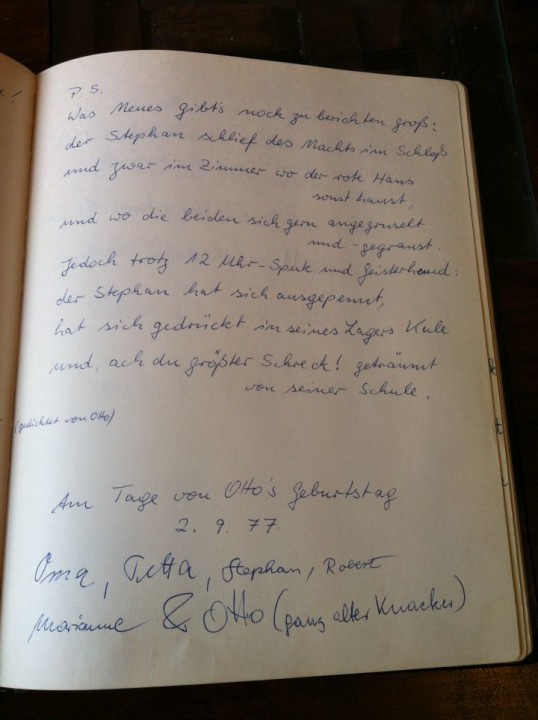 P.S.
Was Neues gibt's noch zu berichten groß:
der Stephan schlief des Nachts im Schloß
und zwar im Zimmer wo der rote Hans
sonst haust,
und wo die beiden sich gern angegruselt
und -gegraust.
Jedoch trotz 12 Uhr-Spuk und Geisterhand:
der Stephan hat sich ausgepennt,
hat sich gedrückt in seines Lagers Kule
und, ach du größter Schreck! geträumt
von seiner Schule.
(gedichtet von Otto)
Am Tage von Otto's Geburtstag
2. 9. 77.
Oma, Tutta, Stephan, Robert
Marianne & Otto (ganz alter Knacker)